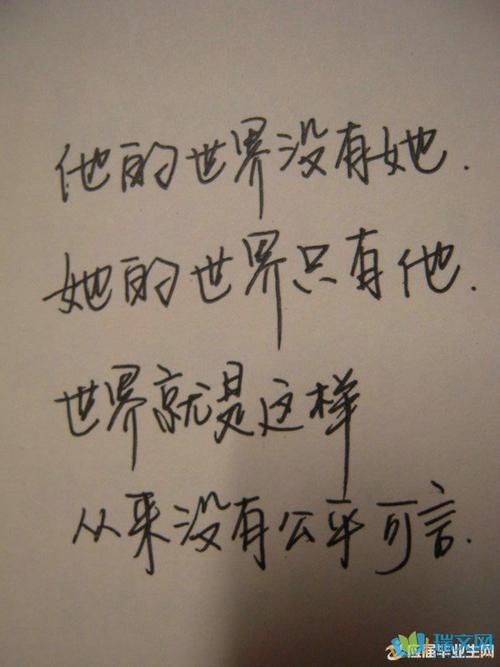 他的世界没有她.
她的世界只有他.
世界就是这样
从来没有公平可言.
瑞文网
应届毕业生网